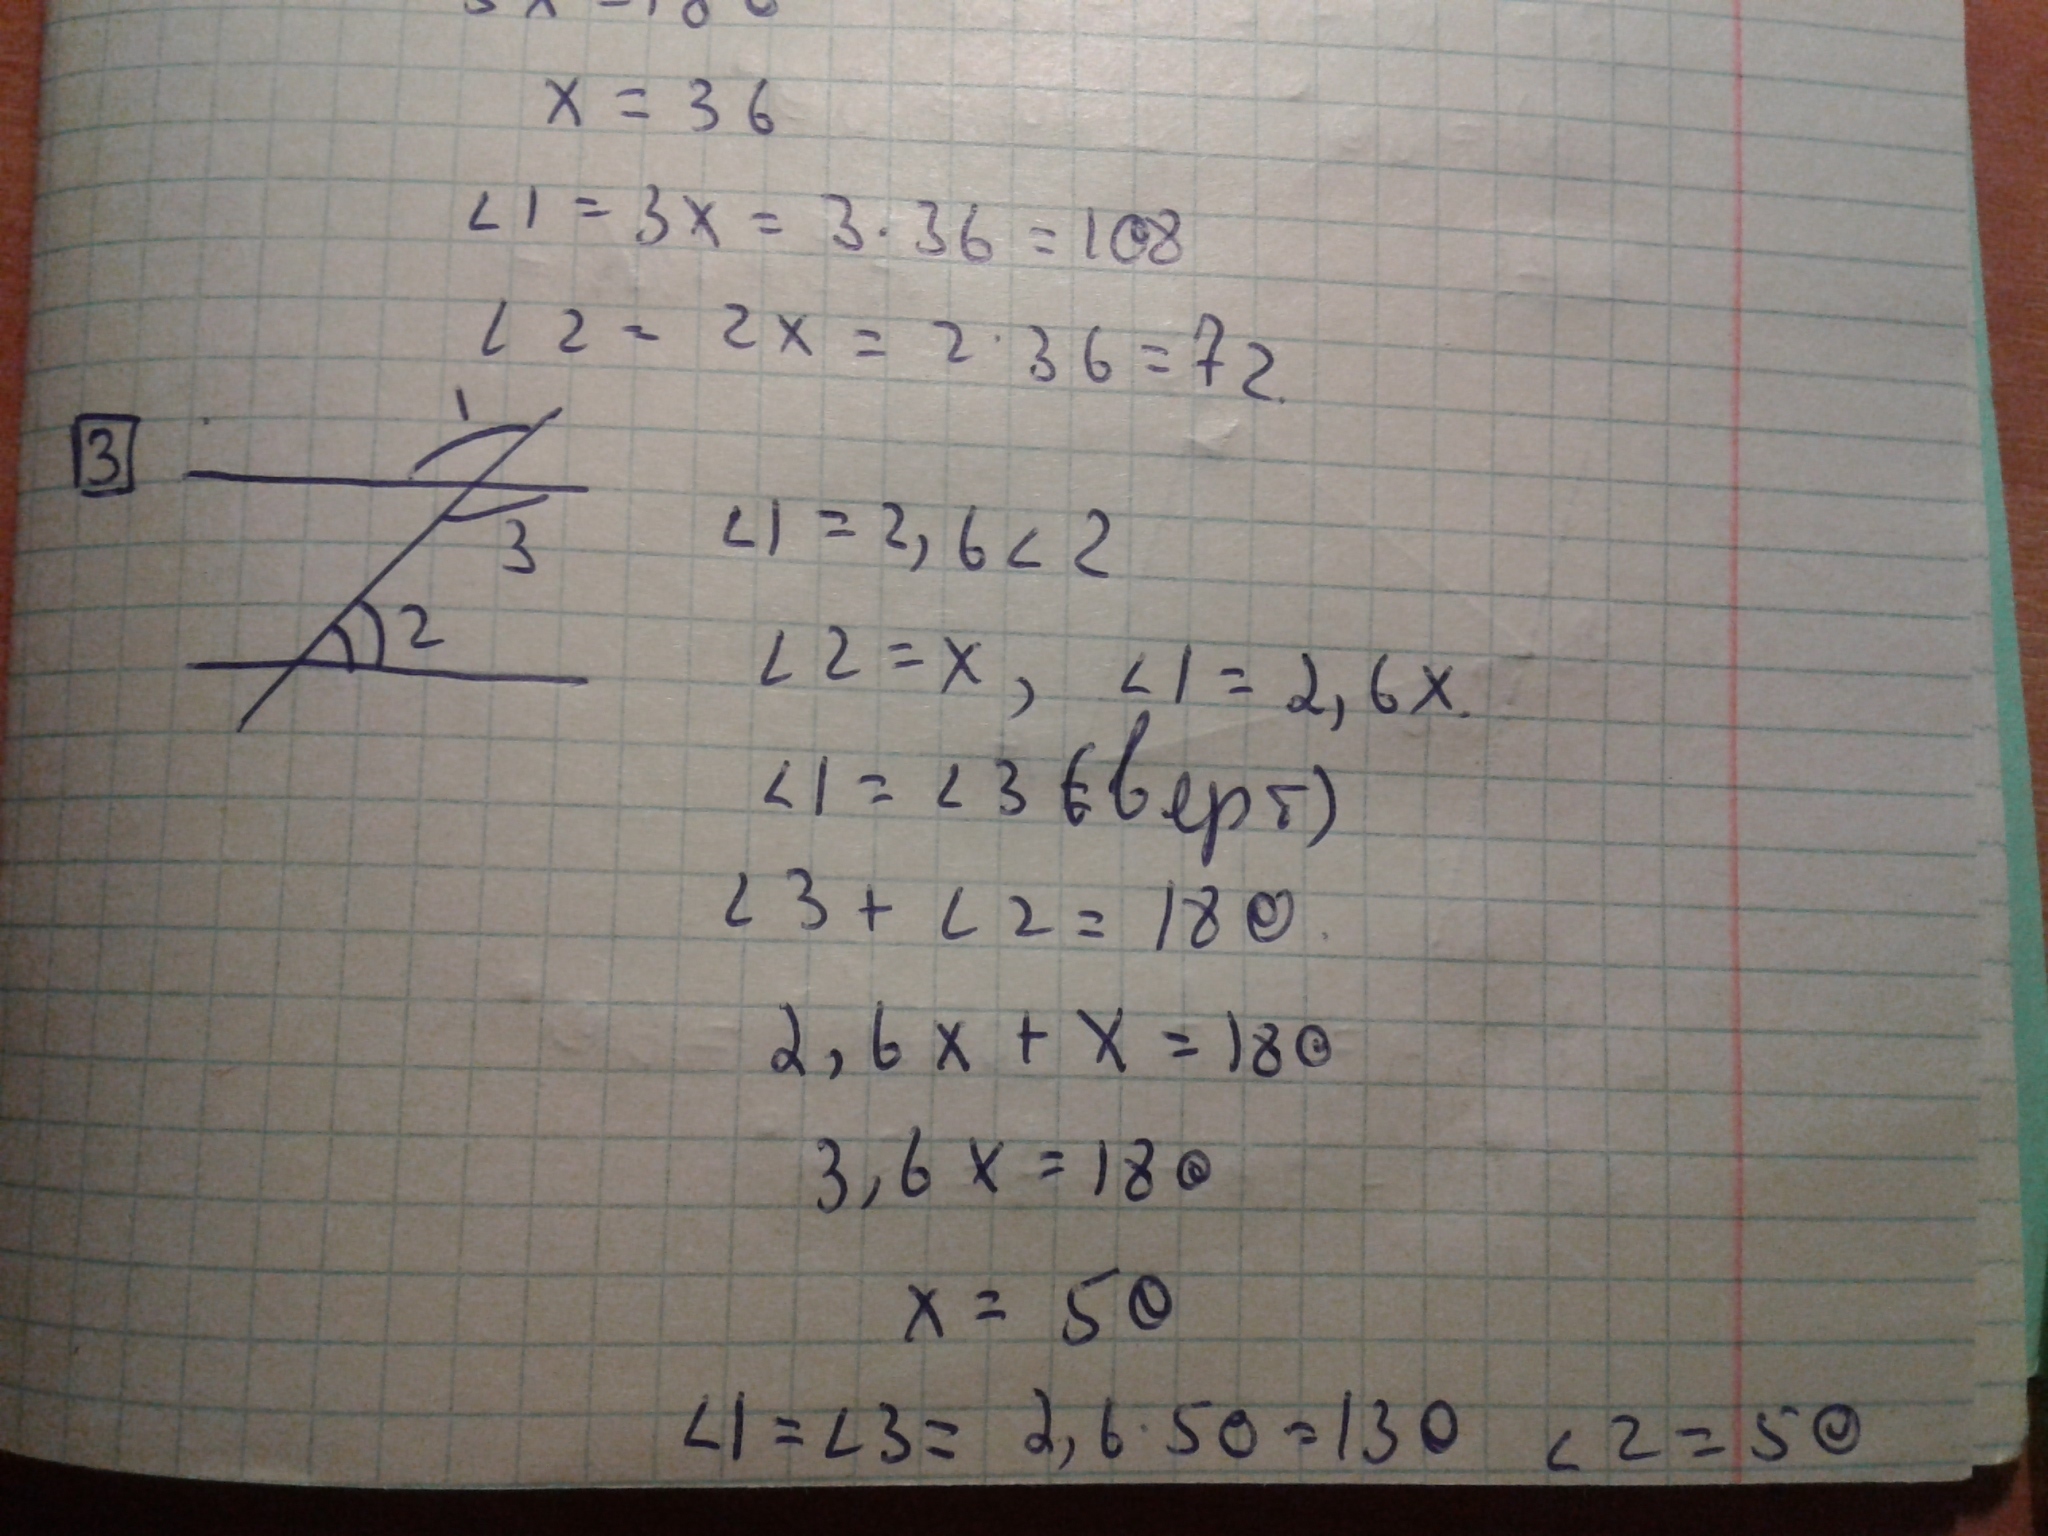 x = 36
∠1 = 3x = 3·36 = 108
∠2 = 2x = 2·36 = 72.
3
1
3
2
∠1 = 2,6∠2
∠2 = x, ∠1 = 2,6x.
∠1 = ∠3 (верт)
∠3 + ∠2 = 180.
2,6x + x = 180
3,6x = 180
x = 50
∠1 = ∠3 = 2,6·50 = 130 ∠2 = 50